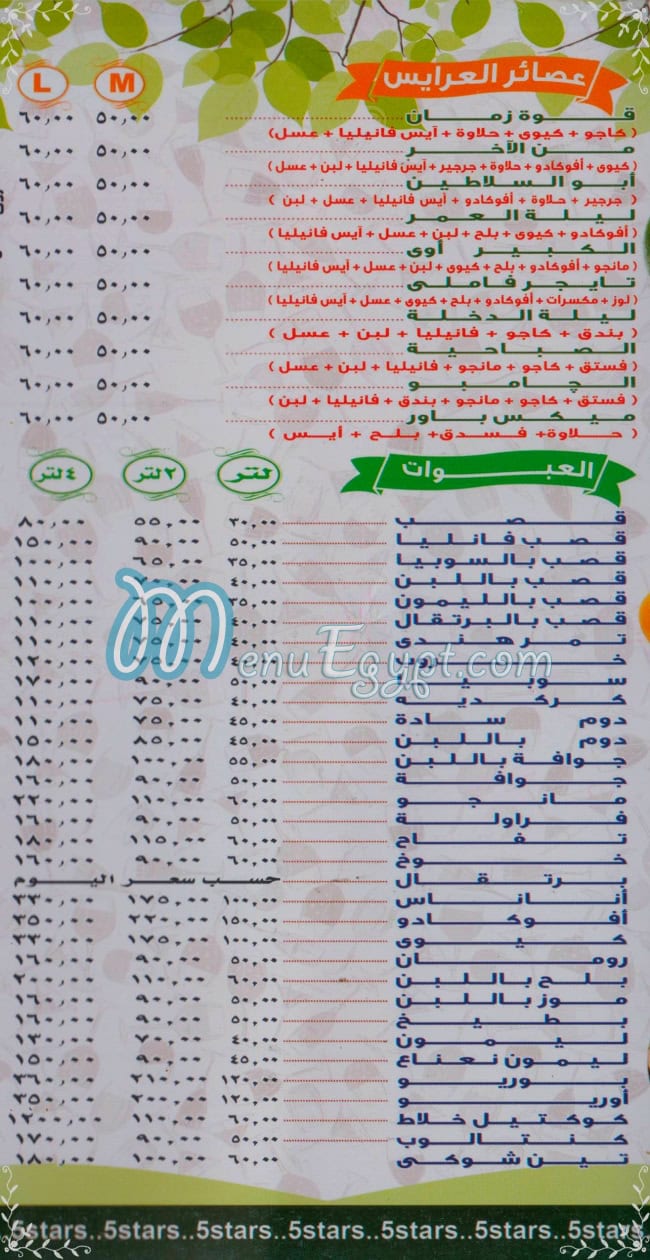 عصائر العرايس M L
قوة زمان ٥٠,٠٠ ٦٠,٠٠
( كاجو + كيوى + حلاوة + آيس فانيليا + عسل )
من الآخر ٥٠,٠٠ ٦٠,٠٠
( كيوى + أفوكادو + حلاوة + جرجير + آيس فانيليا + لبن + عسل )
أبو السلاطين ٥٠,٠٠ ٦٠,٠٠
( جرجير + حلاوة + أفوكادو + آيس فانيليا + عسل + لبن )
ليلة العمر ٥٠,٠٠ ٦٠,٠٠
( أفوكادو + كيوى + بلح + لبن + عسل + آيس فانيليا )
الكبير أوى ٥٠,٠٠ ٦٠,٠٠
( مانجو + أفوكادو + بلح + كيوى + لبن + عسل + آيس فانيليا )
تايجر فاملى ٥٠,٠٠ ٦٠,٠٠
( لوز + مكسرات + أفوكادو + بلح + كيوى + عسل + آيس فانيليا )
ليلة الدخلة ٥٠,٠٠ ٦٠,٠٠
( بندق + كاجو + فانيليا + لبن + عسل )
الصباحية ٥٠,٠٠ ٦٠,٠٠
( فستق + كاجو + مانجو + فانيليا + لبن + عسل )
الچامبو ٥٠,٠٠ ٦٠,٠٠
( فستق + كاجو + مانجو + بندق + فانيليا + لبن )
ميكس باور ٥٠,٠٠ ٦٠,٠٠
( حلاوة + فسدق + بلح + أيس )
العبوات لتر ٢ لتر ٤ لتر
قصب ٣٠,٠٠ ٥٥,٠٠ ٨٠,٠٠
قصب فانليا ٥٠,٠٠ ٩٠,٠٠ ١٥٠,٠٠
قصب بالسوبيا ٣٥,٠٠ ٦٥,٠٠ ١٠٠,٠٠
قصب باللبن ٤٠,٠٠ ١١٠,٠٠
قصب بالليمون ٣٥,٠٠
قصب بالبرتقال ١١٠,٠٠
تمر هندى ١١٠,٠٠
١٢٠,٠٠
سوبيا ٩٠,٠٠ ١٧٠,٠٠
كركديه ٤٠,٠٠ ٧٥,٠٠ ١١٠,٠٠
دوم سادة ٤٥,٠٠ ٧٥,٠٠ ١١٠,٠٠
دوم باللبن ٤٥,٠٠ ٨٥,٠٠ ١٥٠,٠٠
جوافة باللبن ٥٥,٠٠ ١٠٠,٠٠ ١٨٠,٠٠
جوافة ٥٠,٠٠ ٩٠,٠٠ ١٦٠,٠٠
مانجو ٦٠,٠٠ ١١٠,٠٠ ٢٢٠,٠٠
فراولة ٥٠,٠٠ ٩٠,٠٠ ١٦٠,٠٠
تفاح ٦٠,٠٠ ١١٥,٠٠ ١٨٠,٠٠
خوخ ٦٠,٠٠ ٩٠,٠٠ ١٦٠,٠٠
برتقال حسب سعر اليوم
أناناس ١٠٠,٠٠ ١٧٥,٠٠ ٣٣٠,٠٠
أفوكادو ١٥٠,٠٠ ٢٢٠,٠٠ ٣٥٠,٠٠
كيوى ١٠٠,٠٠ ١٧٥,٠٠ ٣٣٠,٠٠
رومان ٥٠,٠٠ ٩٠,٠٠ ١٦٠,٠٠
بلح باللبن ٦٠,٠٠ ١١٠,٠٠ ٢٠٠,٠٠
موز باللبن ٥٠,٠٠ ٩٠,٠٠ ١٦٠,٠٠
بطيخ ٥٠,٠٠ ٩٠,٠٠ ١٦٠,٠٠
ليمون ٤٠,٠٠ ٧٠,٠٠ ١٣٠,٠٠
ليمون نعناع ٤٥,٠٠ ٩٠,٠٠ ١٥٠,٠٠
بوريو ١٢٠,٠٠ ٢١٠,٠٠ ٣٦٠,٠٠
أوريو ١٢٠,٠٠ ٢٠٠,٠٠ ٣٥٠,٠٠
كوكتيل خلاط ٦٠,٠٠ ١١٠,٠٠ ١٢٠٠,٠٠
كنتالوب ٥٠,٠٠ ٩٠,٠٠ ١٧٠,٠٠
تين شوكى ٦٠,٠٠ ١٠٠,٠٠ ١٨٠,٠٠
MenuEgypt.com
5stars..5stars..5stars..5stars..5stars..5stars..5stars